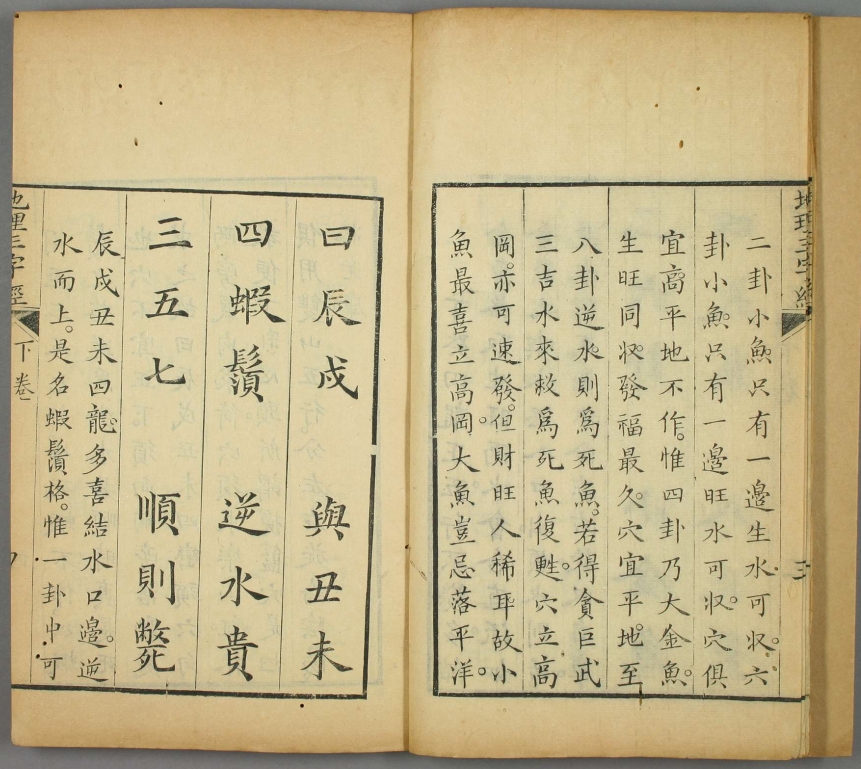 地理三字經
二卦小魚只有一邊生水可収。六
卦小魚。只有一邊旺水可収。穴俱
宜高平地不作。惟四卦乃大金魚。
生旺同収。發福最久。穴宜平地。至
八卦逆水則爲死魚。若得貪巨武
三吉水來救爲死魚復甦。穴立高
岡。亦可速發。但財旺人稀耳故小
魚最喜立高岡。大魚豈忌落平洋。
曰辰戍 與丑未
四蝦鬚 逆水貴
三五七 順則斃
辰戍丑未四龍。多喜結水口邊。逆
水而上。是名蝦鬚格。惟一卦中可
地理三字經 下卷